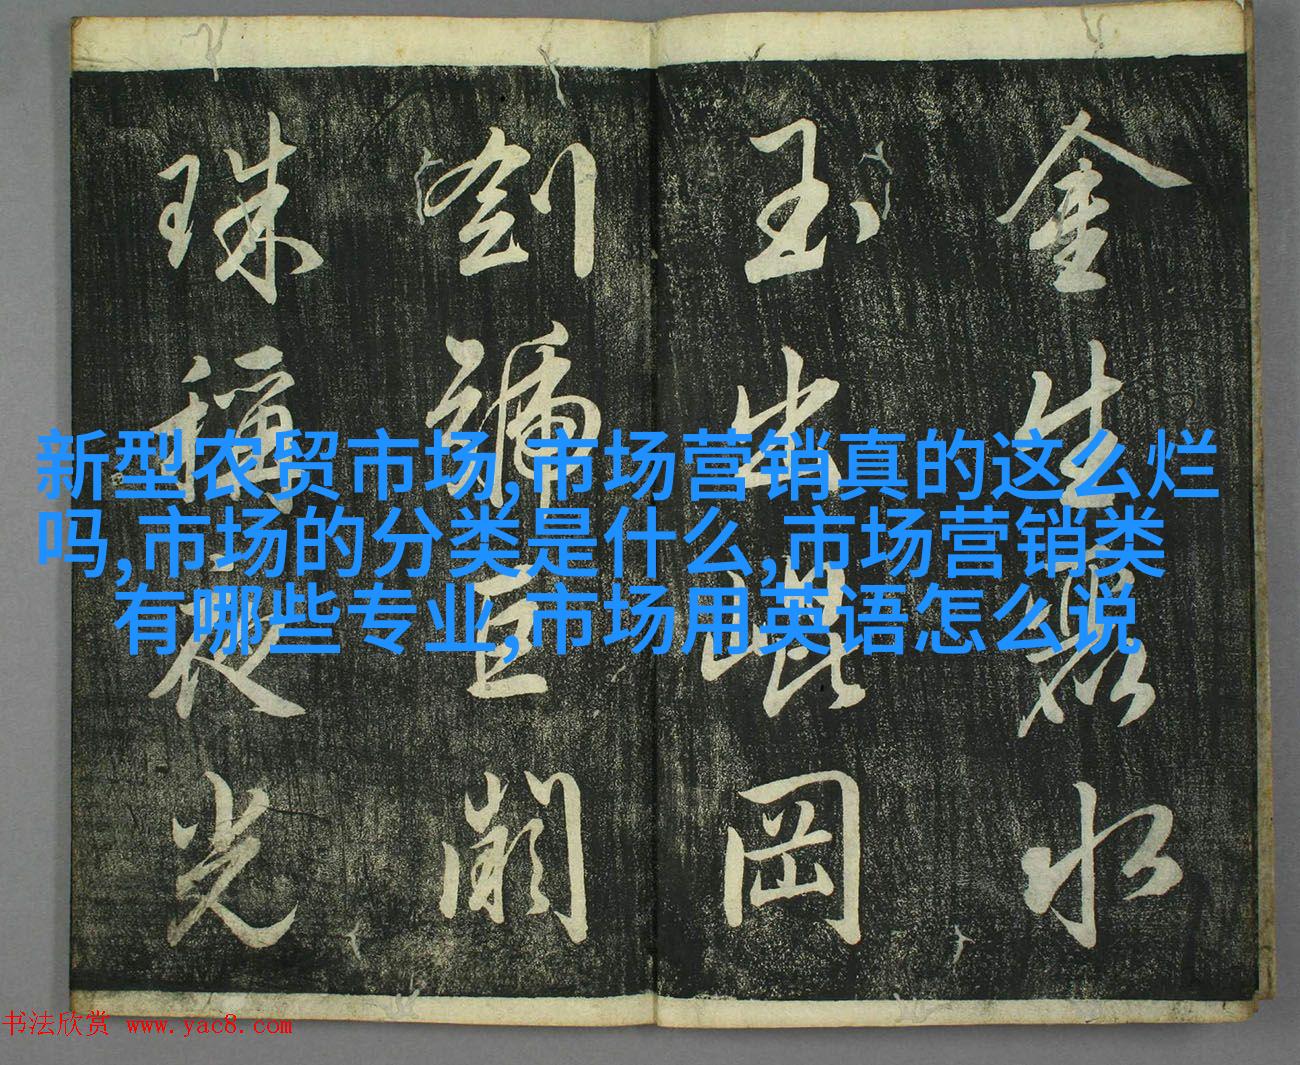 金生麗水
玉出崐岡
劍號巨闕
珠稱夜光
新型农贸市场,市场营销真的这么烂
吗,市场的分类是什么,市场营销类
有哪些专业,市场用英语怎么说
书法欣赏 www.yac8.com